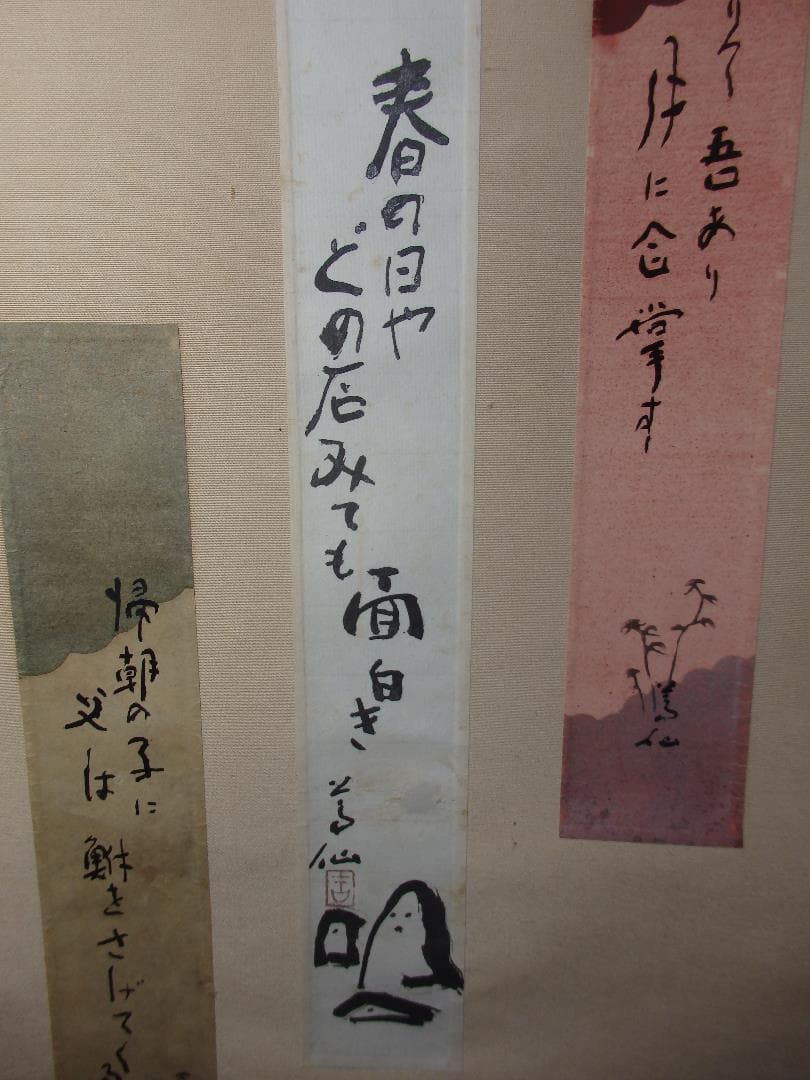 吾あり
月に合掌す
春の日や
どの店みても
面白き
帰朝の子に
父は鮒をさげてくる